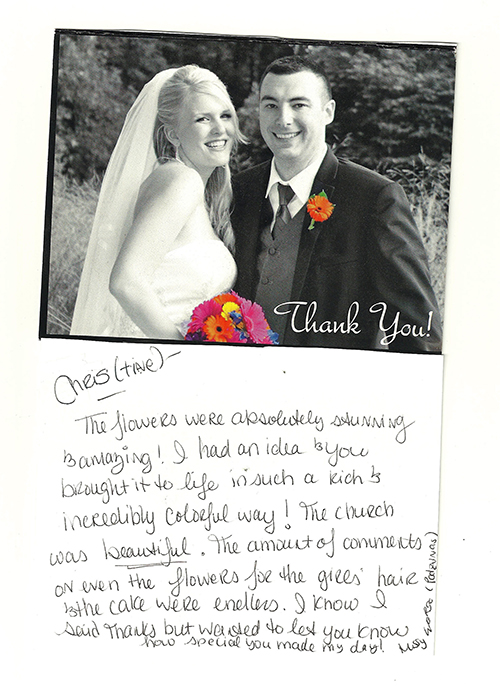 Thank You!
Chris(tine)-
The flowers were absolutely stunning
& amazing! I had an idea & you
brought it to life in such a rich &
incredibly colorful way! The church
was beautiful. The amount of comments
on even the flowers for the girls' hair
& the cake were endless. I know I
said thanks but wanted to let you know
how special you made my day!